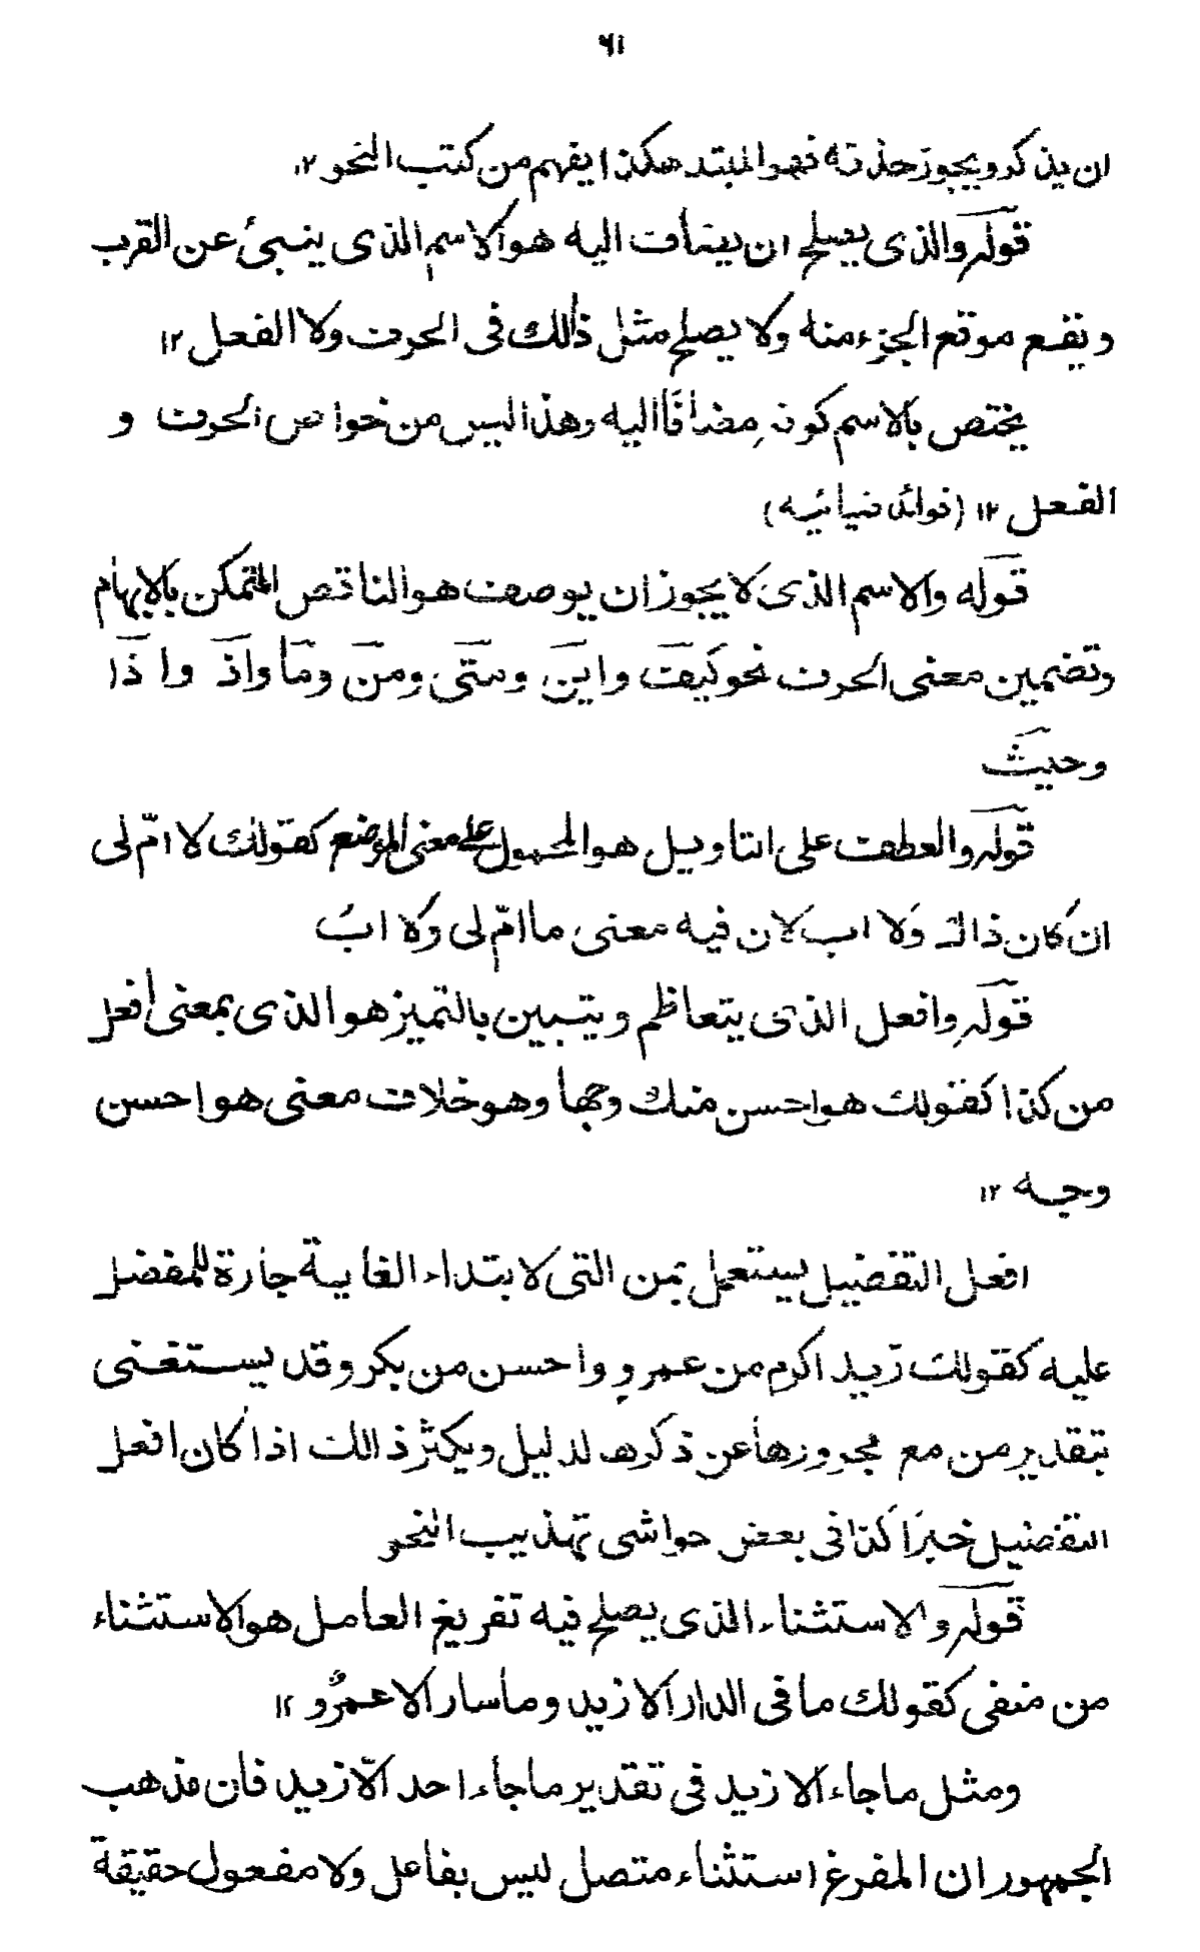 ٦١
ان يذكر ويجوز حذفه فهو المبتدء هكذا يفهم من كتب النحو ١٢
قوله والذى يصلح ان يضاف اليه هو الاسم الذى ينبئ عن القرب
ويقع موقع الجزء منه ولا يصلح مثل ذالك فى الحرف ولا الفعل ١٢
يختص بالاسم كونه مضافًا اليه وهذا ليس من خواص الحرف و
الفعل ١٢ (فوائد ضيائيه)
قوله والاسم الذى لا يجوز ان يوصف هو الناقص المتمكن بالايهام
وتضمين معنى الحرف نحو كيف واين ومتى ومن وما واذ واذا
وحيث
قوله والعطف على التاويل هو المحمول على معنى الموضع كقولك لا امّ لى
ان كان ذاك ولا اب لان فيه معنى ما امّ لى ولا ابٌ
قوله وافعل الذى يتعاظم ويتبين بالتميز هو الذى بمعنى افعل
من كذا كقولك هو احسن منك وجها وهو خلاف معنى هو احسن
وجه ١٢
افعل التفضيل يستعمل بمن التى لابتداء الغاية جارة للمفضل
عليه كقولك زيد اكرم من عمرو واحسن من بكر وقد يستغنى
بتقدير من مع مجرورها عن ذكره لدليل ويكثر ذالك اذا كان افعل
التفضيل خبرًا كذا فى بعض حواشى تهذيب النحو
قوله والاستثناء الذى يصلح فيه تفريغ العامل هو الاستثناء
من منفى كقولك ما فى الدار الا زيد وما سار الا عمرٌو ١٢
ومثل ما جاء الا زيد فى تقدير ما جاء احد الّا زيد فان مذهب
الجمهور ان المفرغ استثناء متصل ليس بفاعل ولا مفعول حقيقة